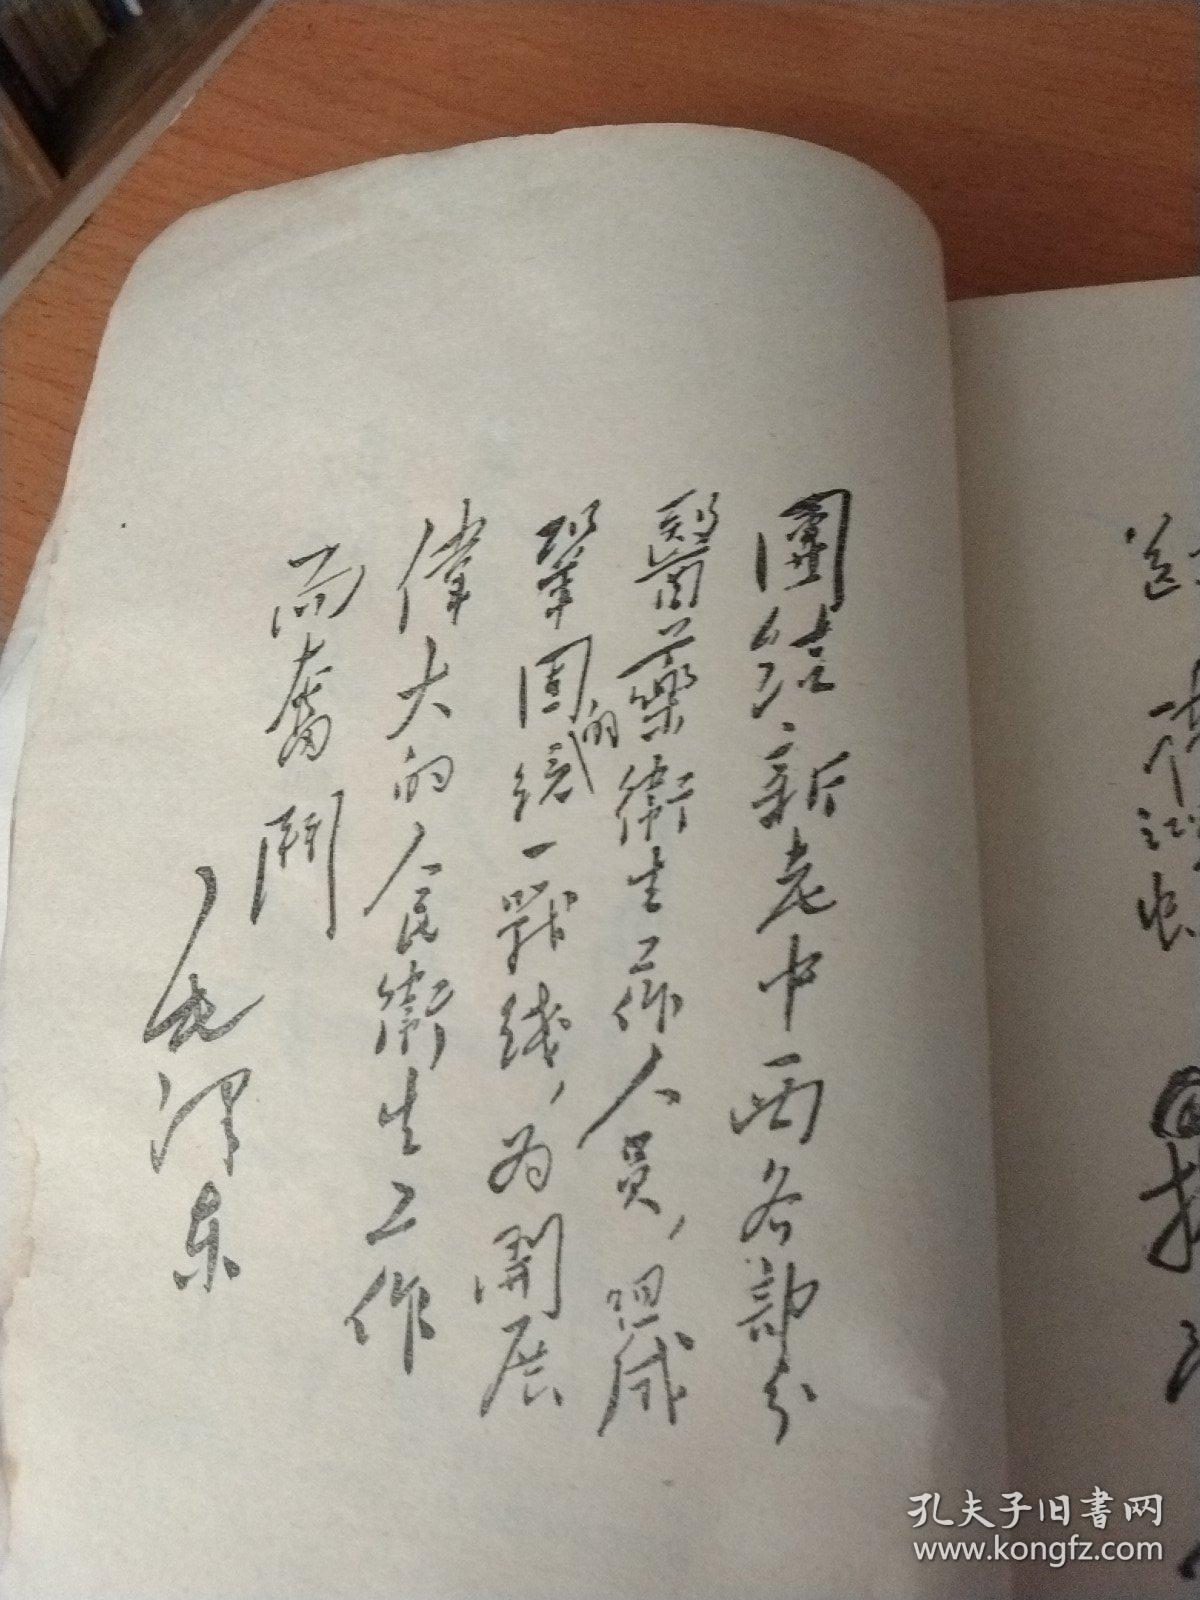 團结新老中西各部分
醫藥衛生工作人員，组成
鞏固的统一戰线，为開展
偉大的人民衛生工作
而奮鬥
毛泽东
送
孔夫子旧书网
www.kongfz.com